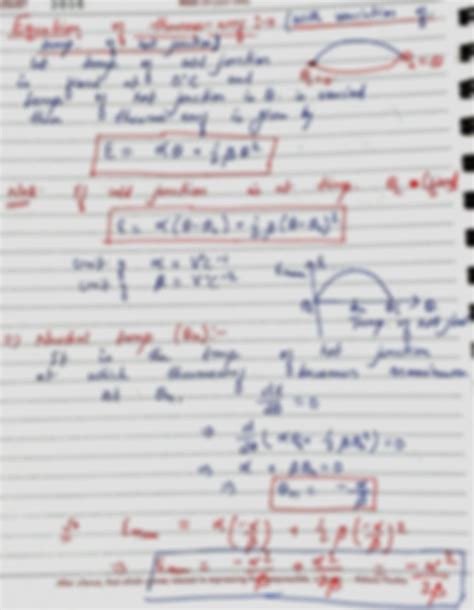 Equation of thermo emf :- (with variation of
temp of hot junction)
let temp of cold junction
is fixed at 0°C and
temp of hot junction is θ is varied
then thermo emf is given by
E = αθ + ½ βθ²
Note: If cold junction is at temp. θc
E = α(θ-θc) + ½ β(θ-θc)²
Unit of α = V°C⁻¹
Unit of β = V°C⁻²
Temp of hot junc
=> Neutral temp (θn) :-
It is the temp of hot junction
at which thermo emf becomes maximum
At θn, dE/dθ = 0
⇒ d/dθ (αθ + ½ βθ²) = 0
⇒ α + βθn = 0
⇒ θn = -α/β
Emax = α(-α/β) + ½ β(-α/β)²
⇒ Emax = -α²/β + α²/2β = -α²/2β